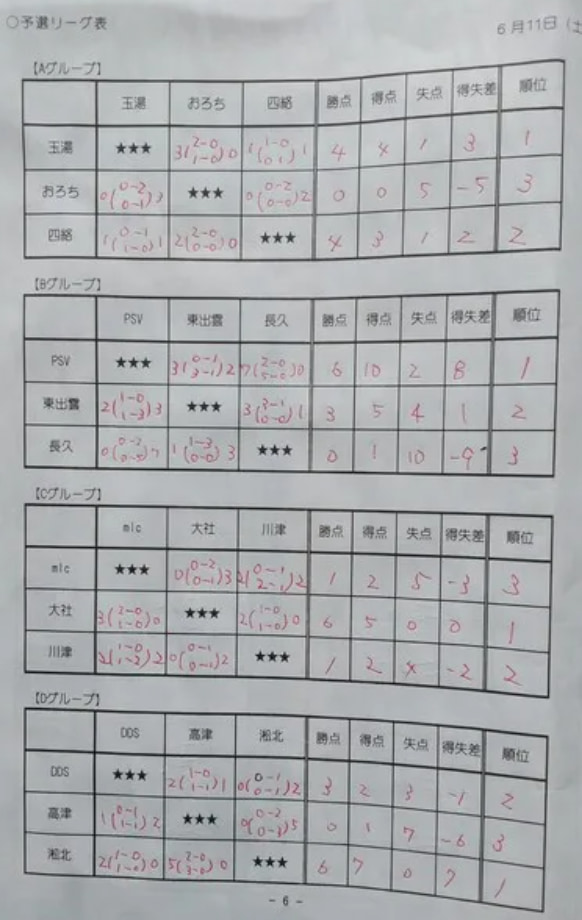 ○予選リーグ表
6月11日(土
【Aグループ】
玉湯 おろち 四絡 勝点 得点 失点 得失差 順位
玉湯 ★★★ 3(2-0 1-0)0 1(1-0 0-1)1 4 4 1 3 1
おろち 0(0-2 0-1)3 ★★★ 0(0-2 0-0)2 0 0 5 -5 3
四絡 1(0-1 1-0)1 2(2-0 0-0)0 ★★★ 4 3 1 2 2
【Bグループ】
PSV 東出雲 長久 勝点 得点 失点 得失差 順位
PSV ★★★ 3(0-1 3-1)2 7(2-0 5-0)0 6 10 2 8 1
東出雲 2(1-0 1-3)3 ★★★ 3(3-1 0-0)1 3 5 4 1 2
長久 0(0-2 0-5)7 1(1-3 0-0)3 ★★★ 0 1 10 -9 3
【Cグループ】
mlc 大社 川津 勝点 得点 失点 得失差 順位
mlc ★★★ 0(0-2 0-1)3 2(0-1 2-1)2 1 2 5 -3 3
大社 3(2-0 1-0)0 ★★★ 2(1-0 1-0)0 6 5 0 0 1
川津 2(1-0 1-2)2 0(0-1 0-1)2 ★★★ 1 2 4 -2 2
【Dグループ】
DDS 高津 淞北 勝点 得点 失点 得失差 順位
DDS ★★★ 2(1-0 1-1)1 0(0-1 0-1)2 3 2 3 -1 2
高津 1(0-1 1-1)2 ★★★ 0(0-2 0-3)5 0 1 7 -6 3
淞北 2(1-0 1-0)0 5(2-0 3-0)0 ★★★ 6 7 0 7 1
- 6 -